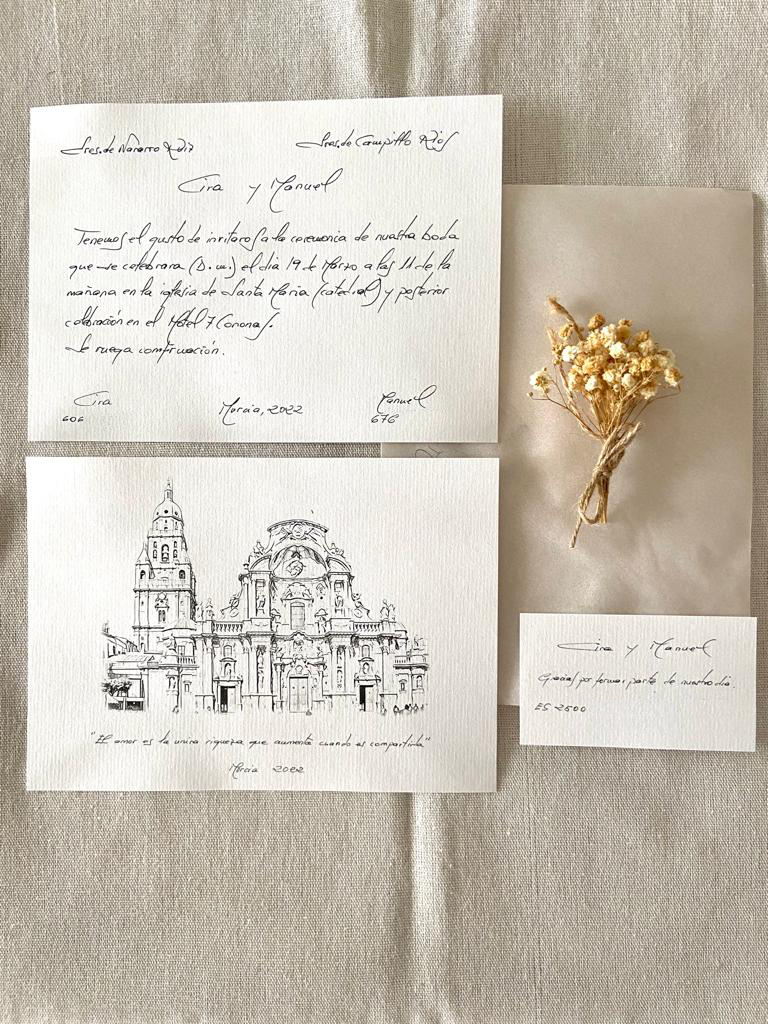 Sres. de Navarro Ruiz
Sres. de Campillo Rios
Cira y Manuel
Tenemos el gusto de invitaros a la ceremonia de nuestra boda
que se celebrara (D. m.) el dia 19 de Marzo a las 11 de la
mañana en la iglesia de Santa Maria (catedral) y posterior
celebración en el Hotel 7 Coronas.
Se ruega confirmación.
Cira
Murcia, 2022
Manuel
606
676
"El amor es la unica riqueza que aumenta cuando es compartida"
Murcia 2022
Cira y Manuel
Gracias por formar parte de nuestro dia.
ES 2500